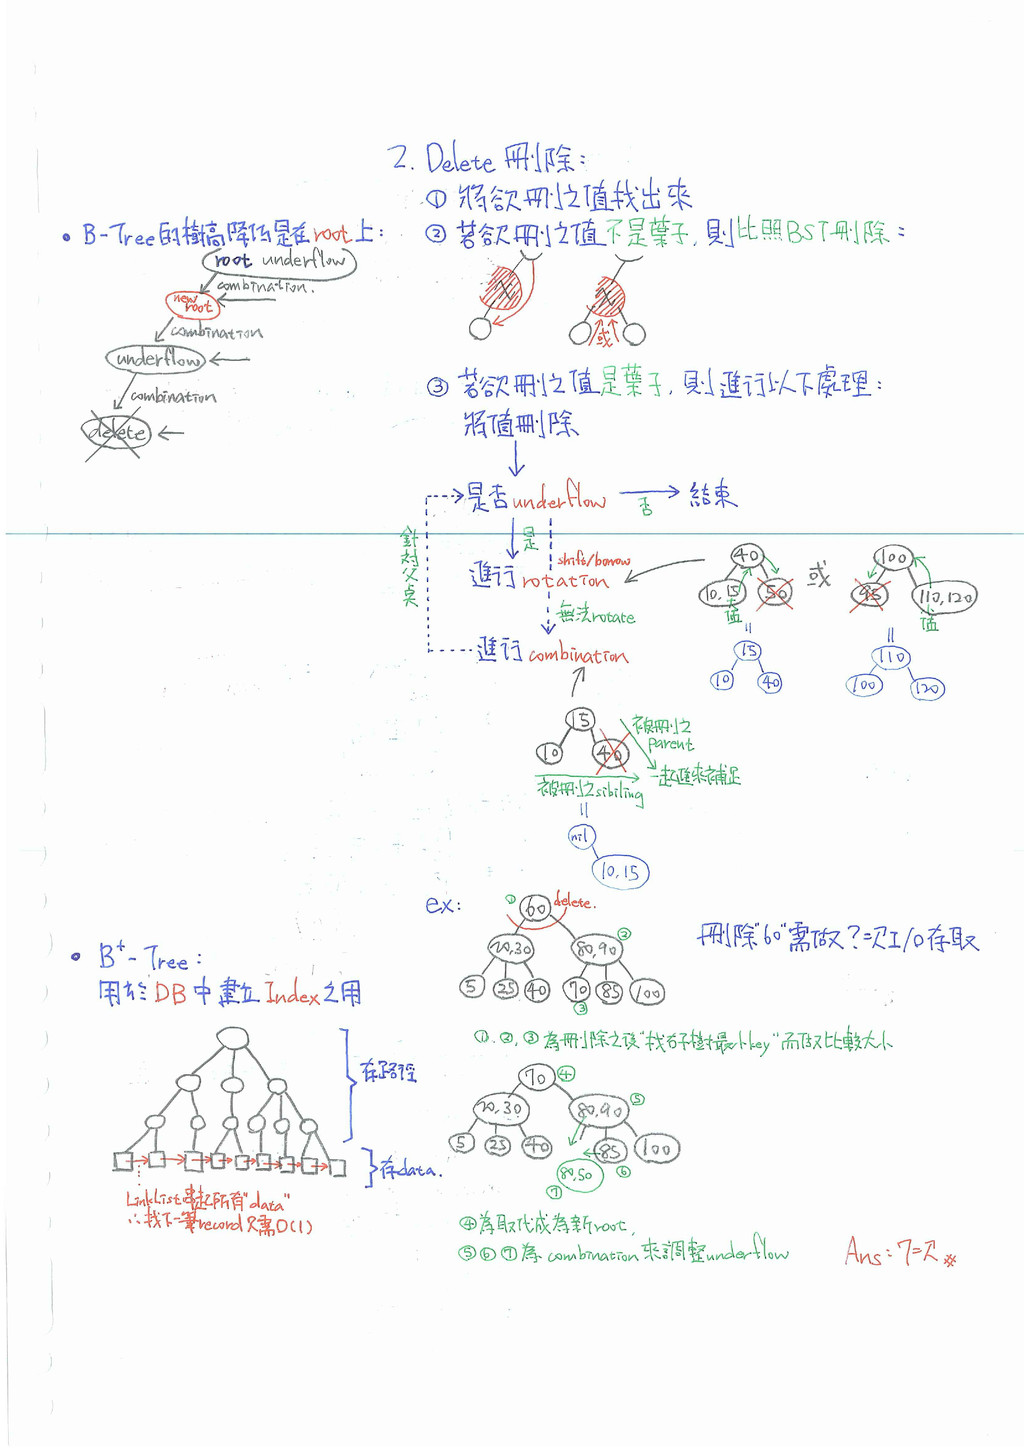 2. Delete 刪除：
① 將欲刪之值找出來
② 若欲刪之值不是葉子，則比照BST刪除：
X
X
或
③ 若欲刪之值是葉子，則進行以下處理：
將值刪除
是否underflow
否
結束
是
針對父點
進行rotation
shift/borrow
無法rotate
進行combination
40
10,15
50
大值
或
100
95
110,120
值
=
15
10
40
=
110
100
120
15
10
40
被刪之
parent
一起進來補足
被刪之sibiling
=
nil
10,15
• B-Tree的樹高降低是在root上：
root underflow
combination.
new root
combination
underflow
combination
delete
ex:
① 60 delete.
20,30
80,90 ②
5
25
40
70
85
100
③
刪除"60"需做?=次I/O存取
①.②.③為刪除之後"找右子樹最小key"而做比較大小
70 ④
20,30
80,90 ⑤
5
25
40
85
100
⑥
80,50
⑦
④為取代成為新root,
⑤⑥⑦為combination來調整underflow
Ans: 7=次#
• B+-Tree:
用於DB中建立Index之用
存路徑
存data.
Link List串起所有"data"
∴找下一筆record只需O(1)